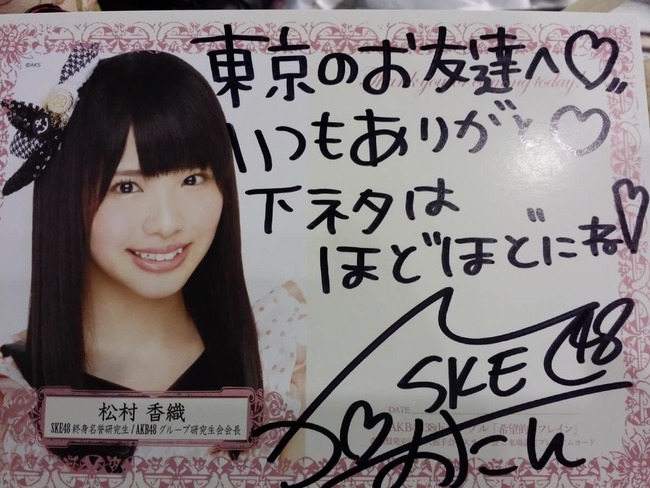 ©AKS
東京のお友達へ♡,,
いつもありがと♡
下ネタは
ほどほどにね♡
SKE48
かおたん
松村 香織
SKE48 終身名誉研究生 / AKB48 グループ研究生会会長
DATE